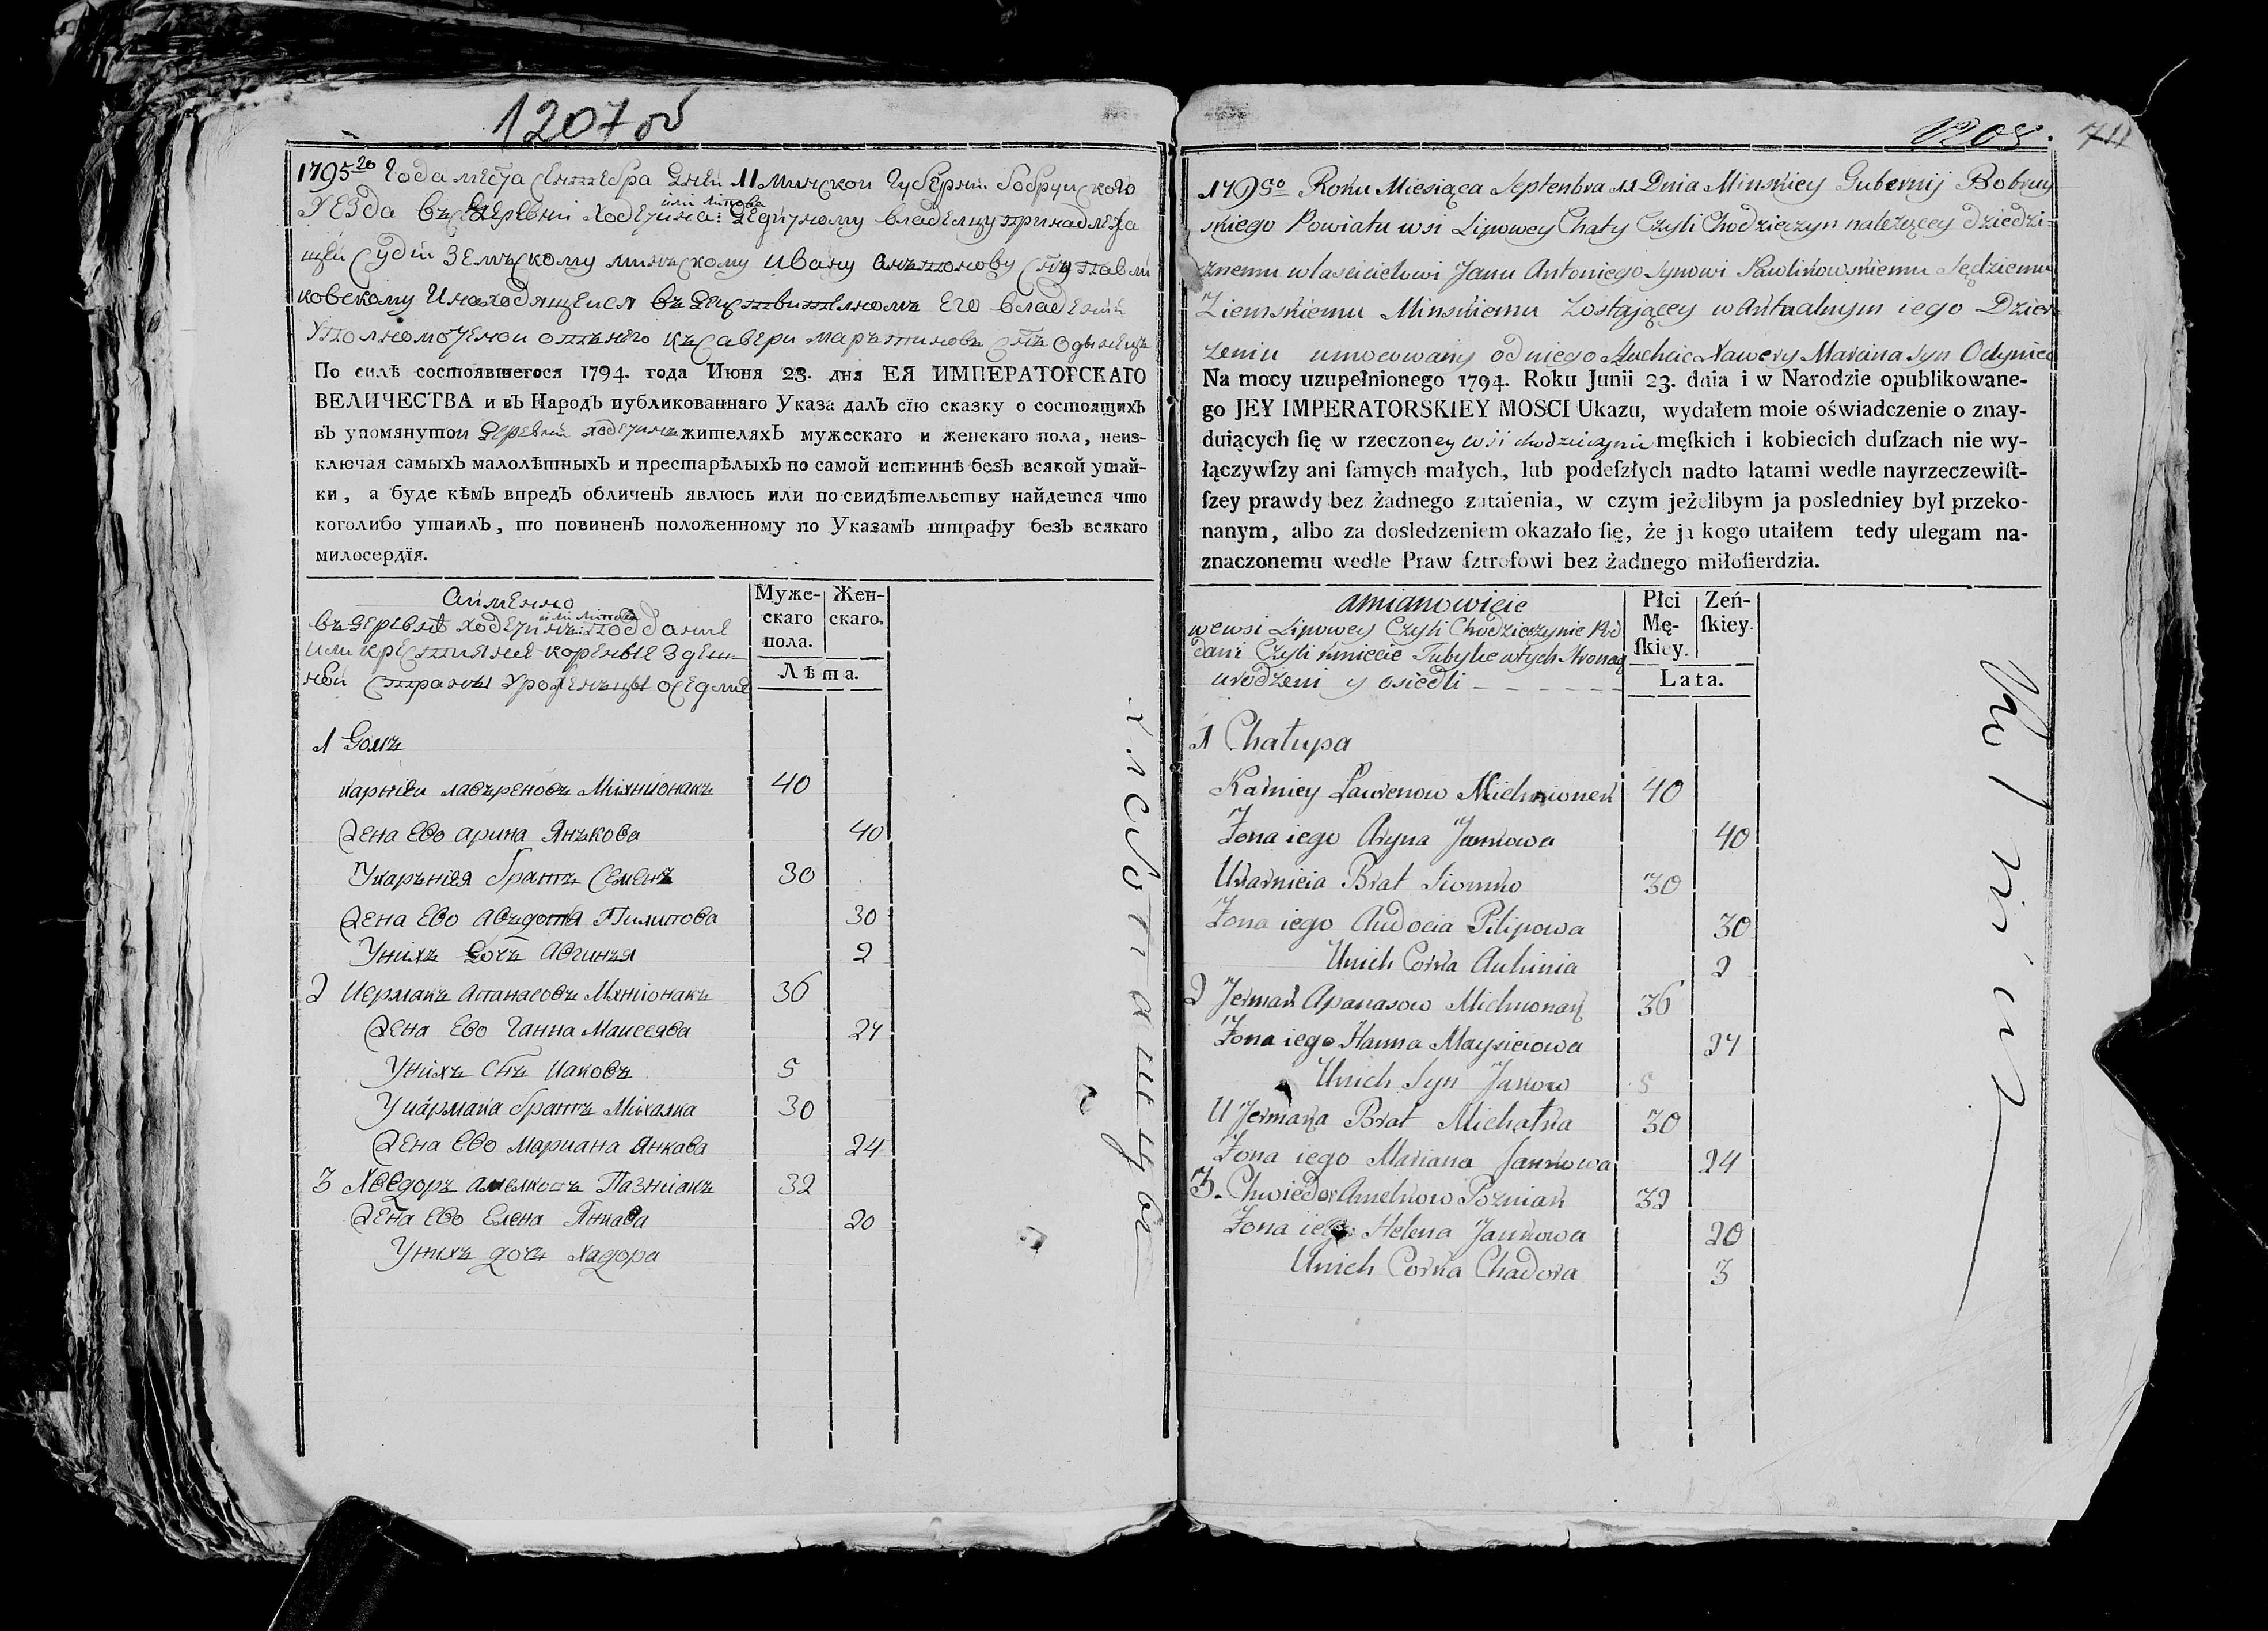 1207 об
1795го Года месеца Сентебра дней 11 Минской Губерни Бобруйского
Уезда в деревни Ходечина: или Липова дедичному владелцу принадлежа
щей Судіи Земъскому минъскому Ивану Антонову сыну Павли
ковскому И находящейся въ действителномъ Его владении
Уполномоченой отънего Ксавери Мартиновъ снъ Одынецъ
По силѣ состоявшегося 1794. года Июня 23. дня ЕЯ ИМПЕРАТОРСКАГО
ВЕЛИЧЕСТВА и въ Народъ публикованнаго Указа далъ сїю сказку о состоящихъ
въ упомянутои деревни ходечинъ жителяхъ мужескаго и женскаго пола, неиз-
ключая самыхъ малолѣтныхъ и престарѣлыхъ по самой истиннѣ безъ всякой утай-
ки, а буде кѣмъ впредъ обличенъ явлюсь или по свидѣтельству найдется что
коголибо утаилъ, то повиненъ положенному по Указамъ штрафу безъ всякаго
милосердїя.
Аименно
въ деревнѣ ходечинъ: или Липова поддание
или крестияне кореные Здеш
ней Страны Уроженъцы оседлие
Муже-
скаго
пола.
Жен-
скаго.
Лѣта.
1 Домъ
карнiеи лавъреновъ Михнiонакъ 40
Жена Ево Арина Янъкова 40
Укаръниея братъ Семенъ 30
Жена Ево Авъдотя Пилипова 30
Унихъ дочъ Авгинъя 2
2 Иермакъ Апанасовъ Михнiонакъ 36
Жена Ево Ганна Маисеява 24
Унiхъ Снъ Иаковъ 5
У иярмака братъ Міхалка 30
Жена Ево Мариана Янкава 24
3 Хведоръ Амелковъ Пазнiакъ 32
Жена Ево Елена Янкава 20
Унихъ дочъ Хадора
1208. 711
1795o Roku Miesiąca Septenbra 11 Dnia Minskiey Gubernij Bobruy
skiego Powiatu wsi Lipowey Chaty Czyli Chodzieczyn należącey dziedzi=
cznemu włascicielowi Janu Antoniego Synowi Pawlikowskiemu Sędziemu
Ziemskiemu Minskiemu Zostającey w Aktualnym iego Dzier
żeniu umocowany od niego Szlachcic Xawery Marcina Syn Odyniec
Na mocy uzupełnionego 1794. Roku Junii 23. dnia i w Narodzie opublikowane-
go JEY IMPERATORSKIEY MOSCI Ukazu, wydałem moie oświadczenie o znay-
duiących ſię w rzeczoney wsi chodzieczynie męſkich i kobiecich duſzach nie wy-
łączywſzy ani ſamych małych, lub podeſzłych nadto latami wedle nayrzeczewiſt-
ſzey prawdy bez żadnego zataienia, w czym jeżelibym ja posledniey był przeko-
nanym, albo za dosledzeniem okazało ſię, że ja kogo utaiłem tedy ulegam na-
znaczonemu wedle Praw ſztrofowi bez żadnego miłoſierdzia.
amianowicie
wewsi Lipowey Czyli Chodzieczynie Pod
dani Czyli kmiecie Tubylce wtych Stronach
urodzeni y osiedli
Płci
Mę-
ſkiey.
Zeń-
ſkiey.
Lata.
1 Chałupa
Karniey Lawrenow Michnionek 40
Żona iego Aryna Jankowa 40
Ukarnieia Brat Siomko 30
Żona iego Audocia Pilipowa 30
Unich Corka Auhinia 2
2 Jermak Apanasow Michnonak 36
Żona iego Hanna Maysieiowa 24
Unich Syn Jakow 5
U Jermaka Brat Michałka 30
Żona iego Mariana Jankowa 24
3. Chwiedor Amelkow Pozniak 32
Żona iego Helena Jankowa 20
Unich Corka Chadora 3